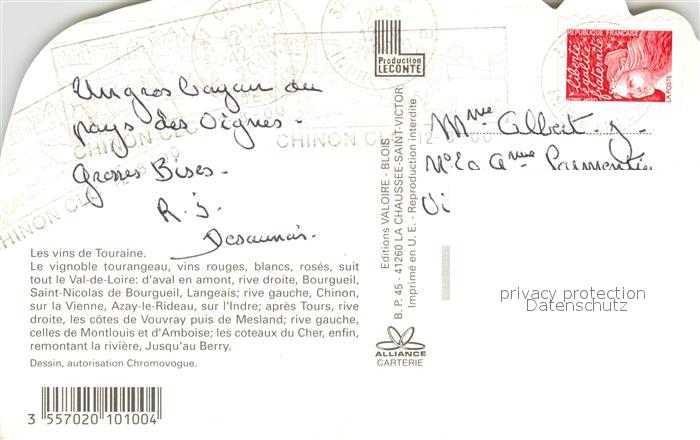 CHINON CEDEX
CHINON CL
12-8-00
Un gros bayou du
pays des Vignes -
Grosses Bises -
R. J.
Desaunais.
Production
LECONTE
RÉPUBLIQUE FRANÇAISE
liberté
égalité
fraternité
LA POSTE
Mme Albert J.
N° 20 Ave Parmentier
Vi
Editions VALOIRE - BLOIS
B. P. 45 - 41260 LA CHAUSSEE-SAINT-VICTOR
Imprimé en U. E. - Reproduction interdite
Les vins de Touraine.
Le vignoble tourangeau, vins rouges, blancs, rosés, suit
tout le Val-de-Loire: d'aval en amont, rive droite, Bourgueil,
Saint-Nicolas de Bourgueil, Langeais; rive gauche, Chinon,
sur la Vienne, Azay-le-Rideau, sur l'Indre; après Tours, rive
droite, les côtes de Vouvray puis de Mesland; rive gauche,
celles de Montlouis et d'Amboise; les coteaux du Cher, enfin,
remontant la rivière, Jusqu'au Berry.
Dessin, autorisation Chromovogue.
ALLIANCE
CARTERIE
privacy protection
Datenschutz
3 557020 101004